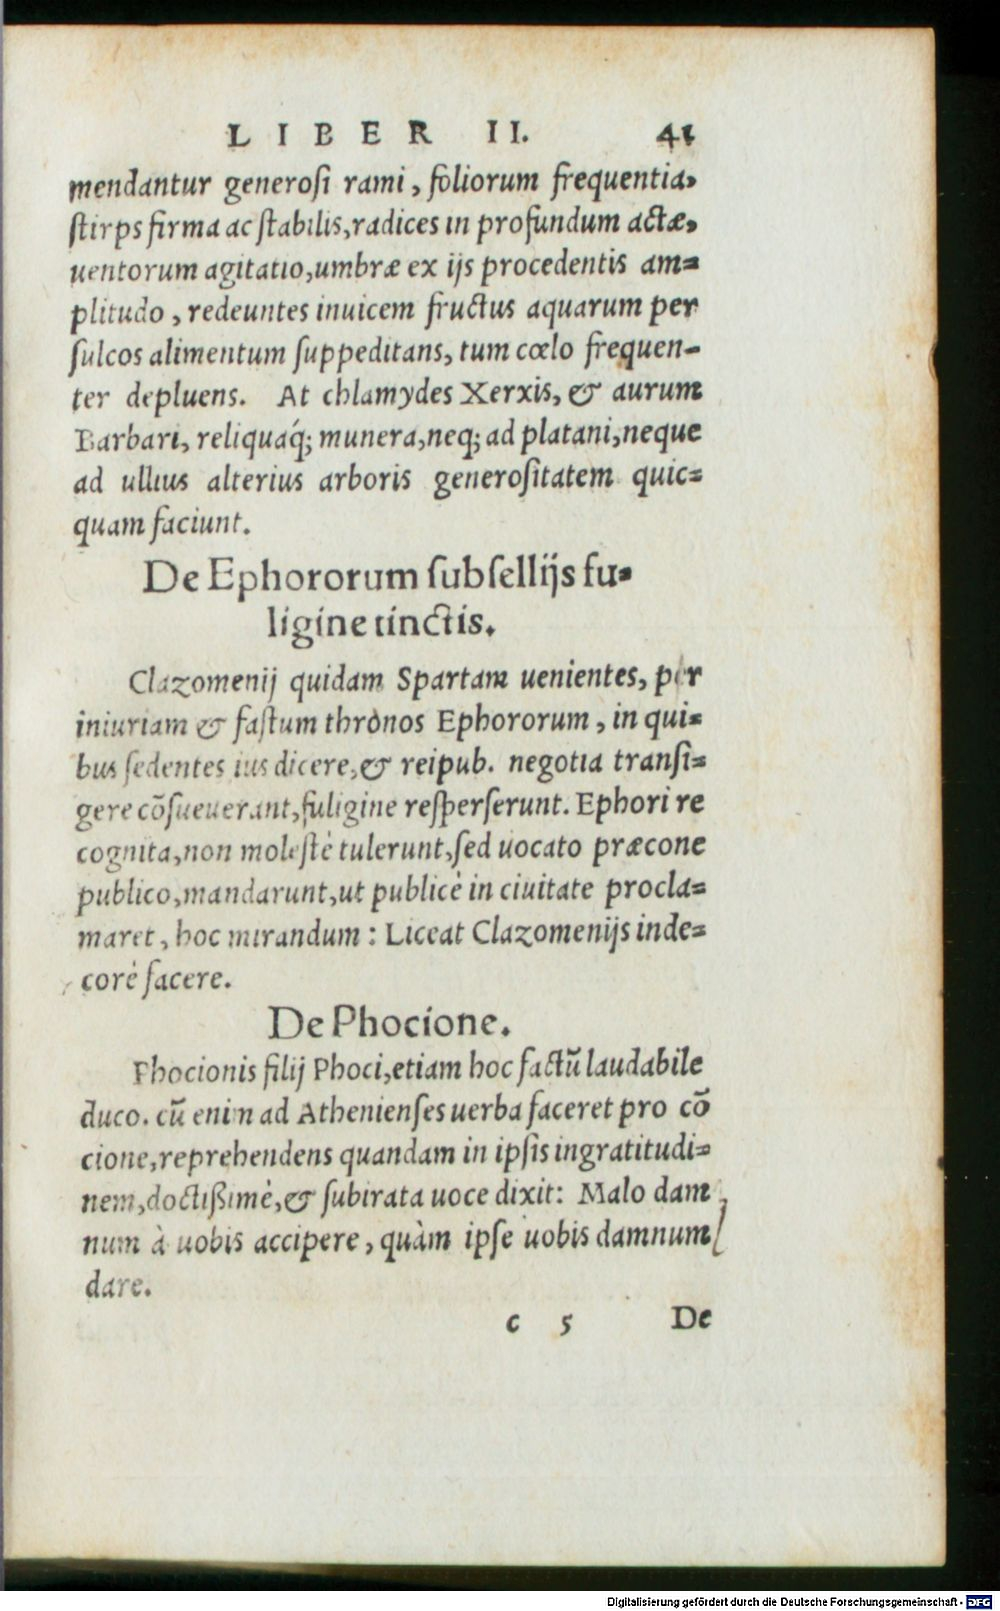 LIBER II. 41
mendantur generosi rami, foliorum frequentia,
stirps firma ac stabilis, radices in profundum actæ,
uentorum agitatio, umbræ ex ijs procedentis am=
plitudo, redeuntes inuicem fructus aquarum per
sulcos alimentum suppeditans, tum cœlo frequen-
ter depluens. At chlamydes Xerxis, & aurum
Barbari, reliquaq́; munera, neq; ad platani, neque
ad ullius alterius arboris generositatem quic=
quam faciunt.
De Ephororum subsellijs fu=
ligine tinctis.
Clazomenij quidam Spartam uenientes, per
iniuriam & fastum thronos Ephororum, in qui=
bus sedentes ius dicere, & reipub. negotia transi=
gere cõsueuerant, fuligine resperserunt. Ephori re
cognita, non molestè tulerunt, sed uocato præcone
publico, mandarunt, ut publicè in ciuitate procla=
maret, hoc mirandum: Liceat Clazomenijs inde=
corè facere.
De Phocione.
Phocionis filij Phoci, etiam hoc factũ laudabile
duco. cũ enim ad Athenienses uerba faceret pro cõ
cione, reprehendens quandam in ipsis ingratitudi=
nem, doctißimè, & subirata uoce dixit: Malo dam
num à uobis accipere, quàm ipse uobis damnum
dare.
c 5 De
Digitalisierung gefördert durch die Deutsche Forschungsgemeinschaft - DFG